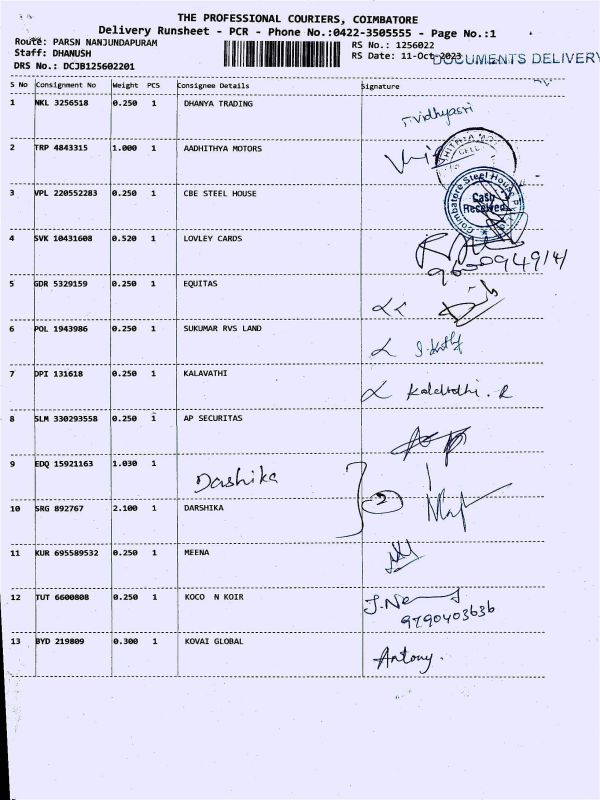 THE PROFESSIONAL COURIERS, COIMBATORE
Delivery Runsheet - PCR - Phone No.:0422-3505555 - Page No.:1
Route: PARSN NANJUNDAPURAM
RS No.: 1256022
Staff: DHANUSH
RS Date: 11-Oct-2023
DOCUMENTS DELIVERY
DRS No.: DCJB125602201
S No Consignment No Weight PCS Consignee Details Signature
1 NKL 3256518 0.250 1 DHANYA TRADING
T.Vidhyasri
2 TRP 4843315 1.000 1 AADHITHYA MOTORS
3 VPL 220552283 0.250 1 CBE STEEL HOUSE
Coimbatore Steel House
Cash
Received
4 SVK 10431608 0.520 1 LOVLEY CARDS
5 GDR 5329159 0.250 1 EQUITAS
6 POL 1943986 0.250 1 SUKUMAR RVS LAND
7 DPI 131618 0.250 1 KALAVATHI
Kalavathi . R
8 SLM 330293558 0.250 1 AP SECURITAS
9 EDQ 15921163 1.030 1 Darshika
2
10 SRG 892767 2.100 1 DARSHIKA
11 KUR 695589532 0.250 1 MEENA
12 TUT 6600808 0.250 1 KOCO N KOIR
9790403636
13 BYD 219809 0.300 1 KOVAI GLOBAL
Antony.